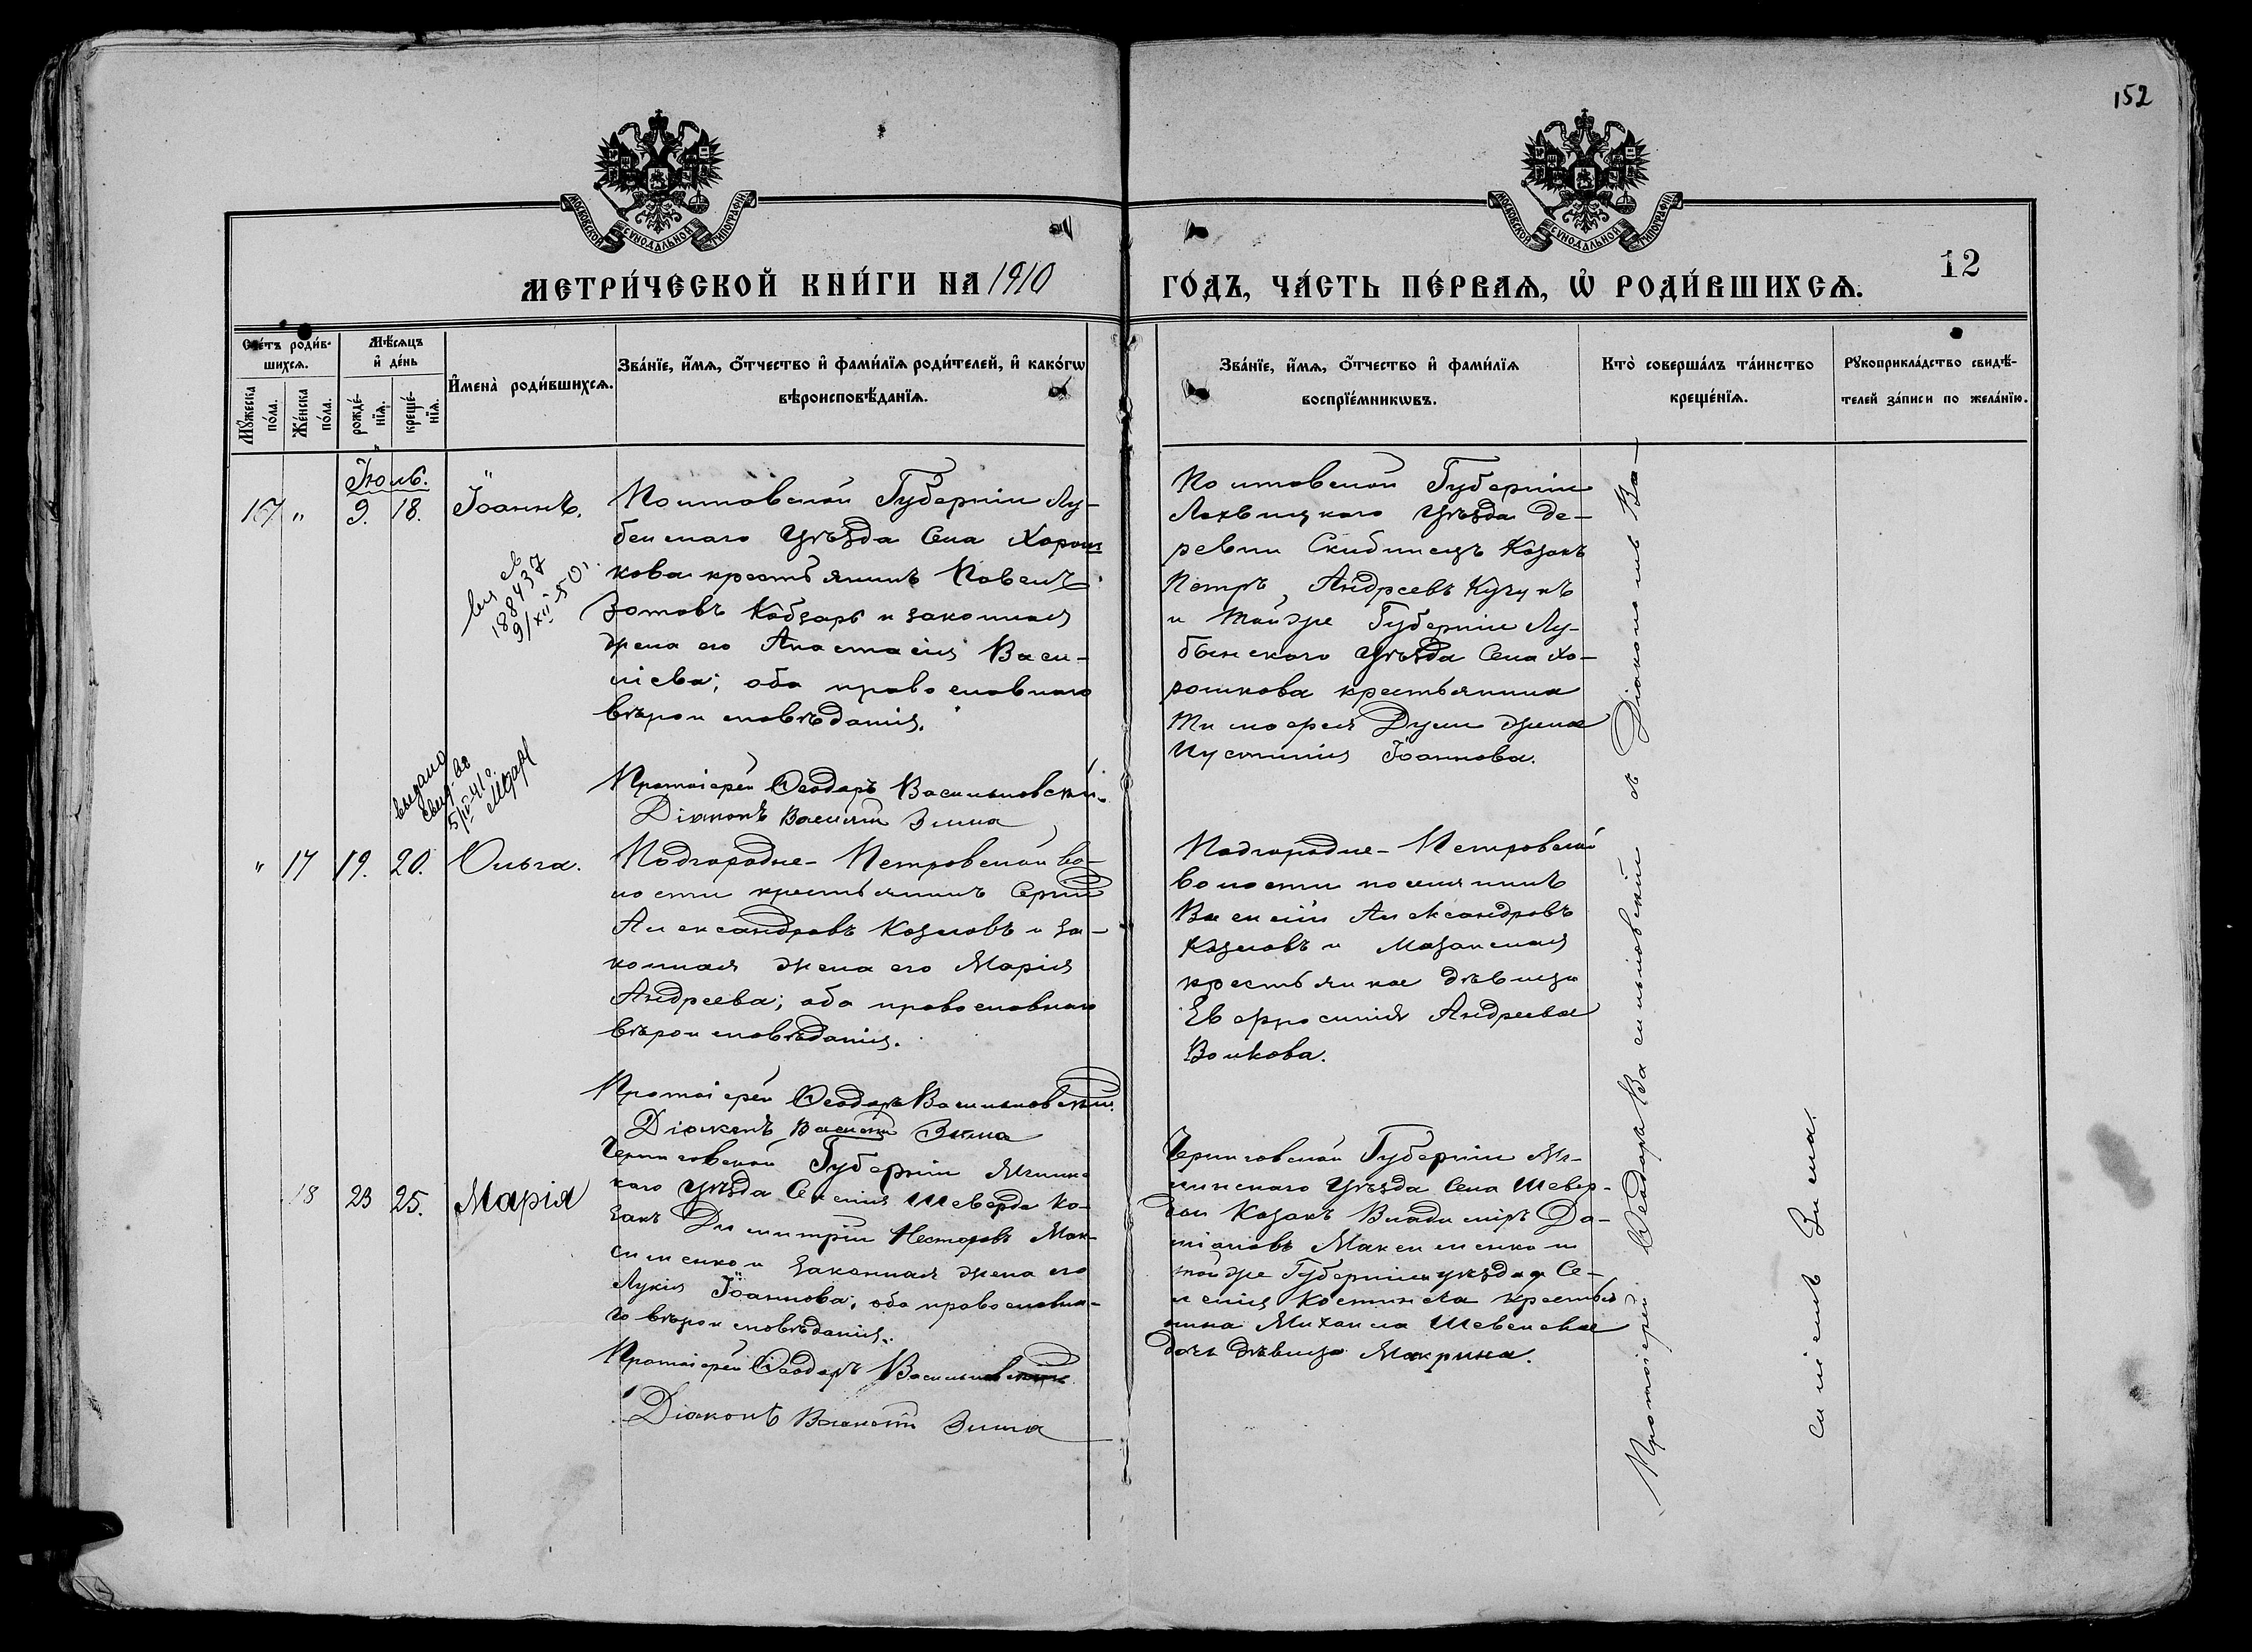 152
МОСКОВСКОЙ СѴНОДАЛЬНОЙ ТИПОГРАФІИ
МОСКОВСКОЙ СѴНОДАЛЬНОЙ ТИПОГРАФІИ
МЕТРИ́ЧЕСКОЙ КНИ́ГИ НА 1910
ГО́ДЪ, ЧА́СТЬ ПЕ́РВАѦ, Ѡ҆ РОДИ́ВШИХСѦ.
12
Сче́тъ роди́в-
шихсѧ.
Мꙋ́жеска
по́ла.
Же́нска
по́ла.
Мѣ́сѧцъ
и҆ де́нь
рожде́-
нїѧ.
креще́-
нїѧ.
И҆мена̀ роди́вшихсѧ.
Зва́нїе, и҆́мѧ, ѻ҆́тчество и҆ фами́лїѧ роди́телей, и҆ како́гѡ
вѣроисповѣ́данїѧ.
Зва́нїе, и҆́мѧ, ѻ҆́тчество и҆ фами́лїѧ
воспрїе́мникѡвъ.
Кто̀ соверша́лъ та́инство
креще́нїѧ.
Рꙋкоприкла́дство свидѣ́-
телей за́писи по жела́нїю.
Іюль.
167 " 9. 18. Іоаннъ.
Полтавской Губерніи Лу-
бенскаго Уѣзда Села Хорош
кова крестьянинъ Павелъ
Зотовъ Кобзарь и законная
жена его Анастасія Васи-
ліева; оба православнаго
вѣроисповѣданія.
188437
9/XII-50
Протоіерей Ѳеодоръ Васильковскій.
Діаконъ Василій Зима
Полтавской Губерніи
Лохвицкаго Уѣзда де-
ревни Скибинецъ Козакъ
Петръ Андреевъ Кучукъ
и той же Губерніи Лу-
бенскаго Уѣзда Села Хо-
рошкова крестьянина
Тимофея Думи жена
Іустинія Іоаннова.
выдано
свид-во
5/IV-41 г.
" 17 19. 20. Ольга.
Подгородне-Петровской во-
лости крестьянинъ Сергій
Александровъ Козловъ и за-
конная жена его Марія
Андреева; оба православнаго
вѣроисповѣданія.
Протоіерей Ѳеодоръ Васильковскій.
Діаконъ Василій Зима
Подгородне-Петровской
волости поселянинъ
Василій Александровъ
Козловъ и
крестьянка дѣвица
Евфросинія Андреева
Волкова.
18 23 25. Марія
Черниговской Губерніи Мглинс
каго Уѣзда Селенія Шеверды Ко-
закъ Димитрій Несторовъ Мак-
сименко и законная жена его
Лукія Іоаннова; оба православна-
го вѣроисповѣданія.
Протоіерей Ѳеодоръ Васильковскій
Діаконъ Василій Зима
Черниговской Губерніи Мг-
линскаго Уѣзда Села Шевер-
ды Козакъ Владиміръ Да-
ніловъ Максименко и
той же Губерніи уѣзда Се-
ленія Костинска крестья
нина Михаила Шевелева
дочь дѣвица Макрина.
Протоіерей Ѳеодоръ Васильковскій съ Діакономъ Ва-
силіемъ Зима.